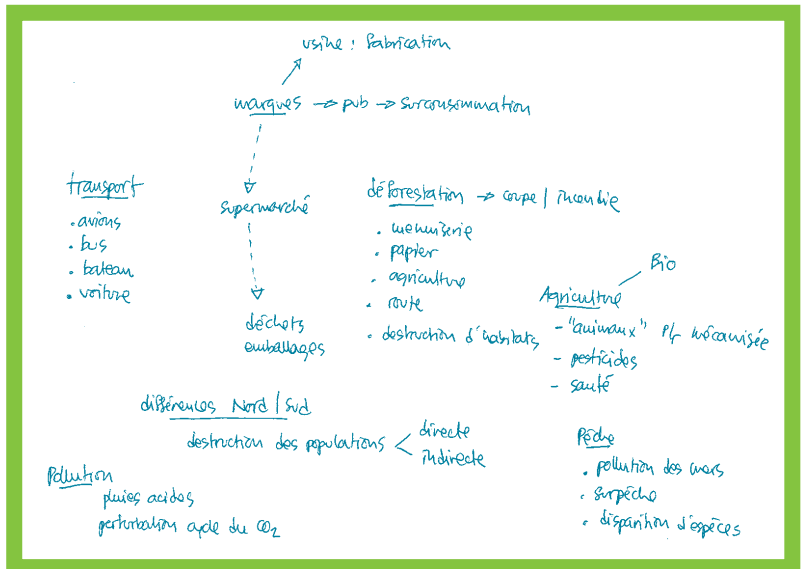 usine : fabrication
marques → pub → surconsommation
transport
• avions
• bus
• bateau
• voiture
supermarché
déchets
emballages
déforestation → coupe / incendie
• menuiserie
• papier
• agriculture
• route
• destruction d'habitats
Bio
Agriculture
- "animaux" mécanisée
- pesticides
- santé
différences Nord / Sud
destruction des populations < directe
indirecte
Pollution
pluies acides
perturbation cycle du CO2
Pêche
• pollution des mers
• surpêche
• disparition d'espèces